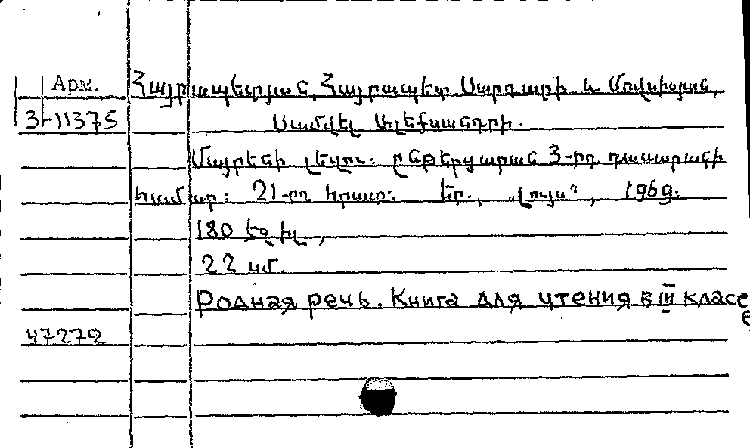 Арм. Հայրապետյան, Հայրապետ Սարդարի և Մովսիսյան,
3-11375 Սամվել Ալեքսանդրի.
Մայրենի լեզու: ընթերցարան 3-րդ դասարանի
համար: 21-րդ հրատ: Եր., „Լույս", 1969.
180 էջ իլ,
22 սմ.
Родная речь. Книга для чтения в III классе
47272